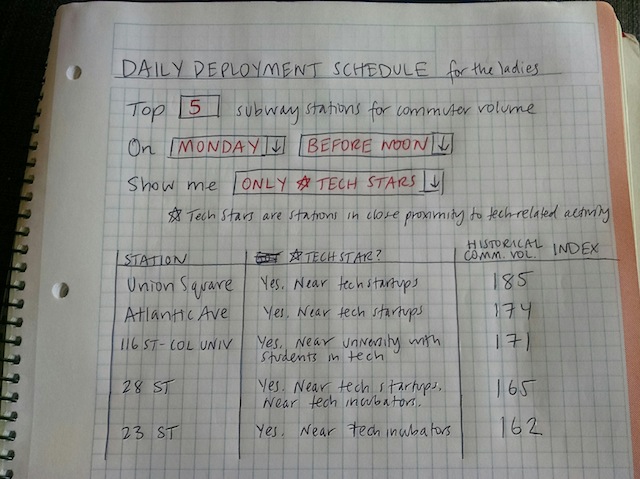 DAILY DEPLOYMENT SCHEDULE for the ladies
Top 5 subway stations for commuter volume
On MONDAY ↓ BEFORE NOON ↓
Show me ONLY ☆ TECH STARS ↓
☆ Tech Stars are stations in close proximity to tech-related activity
STATION ☆ TECH STAR? HISTORICAL COMM. VOL. INDEX
Union Square Yes. Near tech startups 185
Atlantic Ave Yes. Near tech startups 174
116 ST - COL UNIV Yes. Near university with students in tech 171
28 ST Yes. Near tech startups. Near tech incubators. 165
23 ST Yes. Near Tech incubators 162